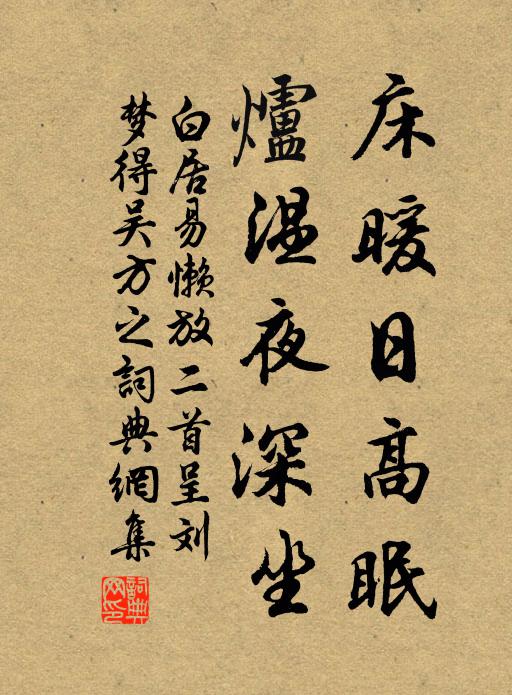 床暖日高眠
爐温夜深坐
白居易懒放二首呈刘
梦得吴方之詞典網集
詞典
网印